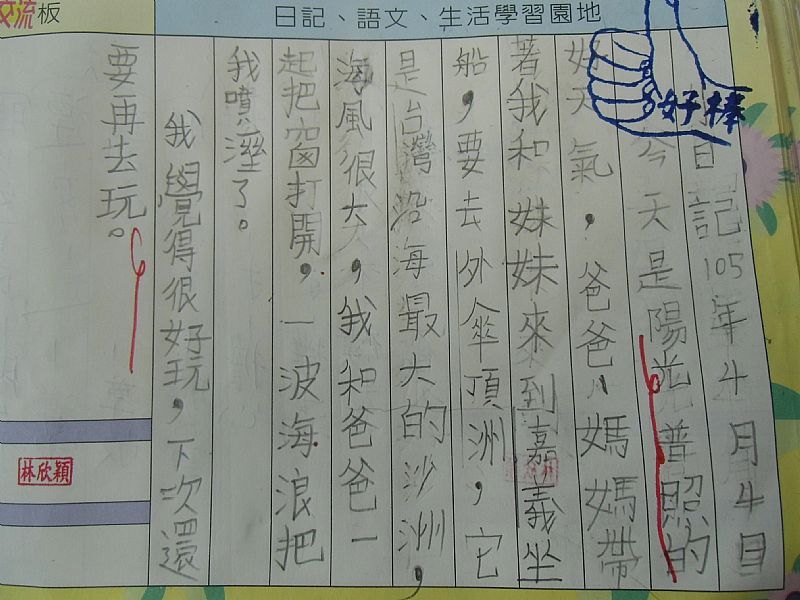 交流板
日記、語文、生活學習園地
好棒
日記105年4月4日
今天是陽光普照的
好天氣，爸爸、媽媽帶
著我和妹妹來到嘉義坐
船，要去外傘頂洲，它
是台灣沿海最大的沙洲，
海風很大，我和爸爸一
起把窗打開，一波海浪把
我噴溼了。
我覺得很好玩，下次還
要再去玩。
林欣穎